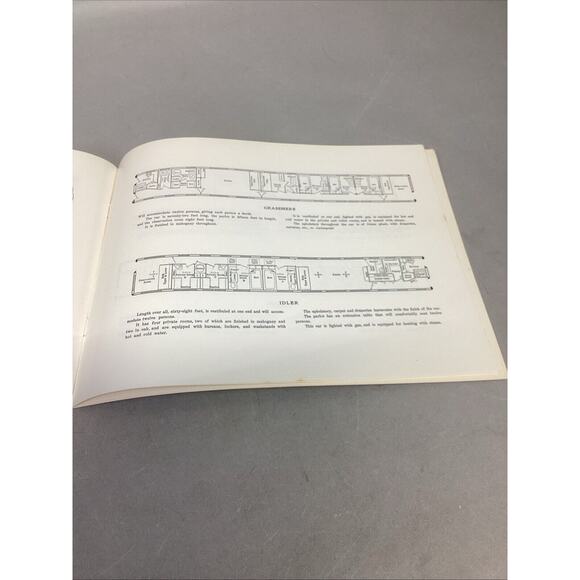 GRASSMERE
Will accommodate twelve persons, giving each person a berth.
The car is seventy-two feet long, the parlor is fifteen feet in length,
and the observation room eight feet long.
It is finished in mahogany throughout.
It is vestibuled at one end, lighted with gas, is equipped for hot and
cold water in the private and toilet rooms, and is heated with steam.
The upholstery throughout the car is of plush, with draperies,
carpets, etc., to correspond.
IDLER
Length over all, sixty-eight feet, is vestibuled at one end and will accom-
modate twelve persons.
It has four private rooms, two of which are finished in mahogany and
two in oak, and are equipped with bureaus, lockers, and washstands with
hot and cold water.
The upholstery, carpet and draperies harmonize with the finish of the car.
The parlor has an extension table that will comfortably seat twelve
persons.
This car is lighted with gas, and is equipped for heating with steam.